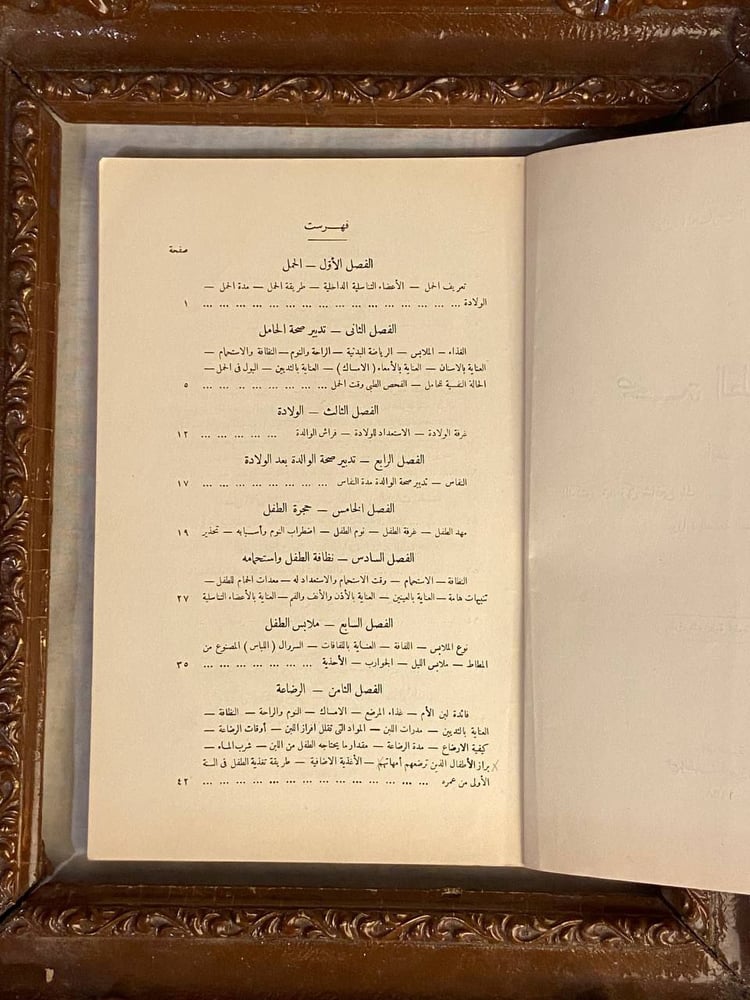 فهرست
صفحة
الفصل الأول — الحمل
تعريف الحمل — الأعضاء التناسلية الداخلية — طريقة الحمل — مدة الحمل —
الولادة ... ... ... ... ... ... ... ... ... ... ... ... ... ... ... ١
الفصل الثانى — تدبير صحة الحامل
الغذاء — الملابس — الرياضة البدنية — الراحة والنوم — النظافة والاستحمام —
العناية بالاسنان — العناية بالأمعاء (الامساك) — العناية بالثديين — البول فى الحمل —
الحالة النفسية للحامل — الفحص الطبى وقت الحمل ... ... ... ... ... ... ... ... ٥
الفصل الثالث — الولادة
غرفة الولادة — الاستعداد للولادة — فراش الوالدة ... ... ... ... ... ١٢
الفصل الرابع — تدبير صحة الوالدة بعد الولادة
النفاس — تدبير صحة الوالدة مدة النفاس ... ... ... ... ... ... ... ... ١٧
الفصل الخامس — حجرة الطفل
مهد الطفل — غرفة الطفل — نوم الطفل — اضطراب النوم وأسبابه — تحذير ١٩
الفصل السادس — نظافة الطفل واستحمامه
النظافة — الاستحمام — وقت الاستحمام والاستعداد له — معدات الحمام للطفل —
تنبيهات هامة — العناية بالعينين — العناية بالأذن والأنف والفم — العناية بالأعضاء التناسلية ٢٧
الفصل السابع — ملابس الطفل
نوع الملابس — اللفافة — العناية باللفافات — السروال (اللباس) المصنوع من
المطاط — ملابس الليل — الجوارب — الأحذية ... ... ... ... ... ... ... ٣٥
الفصل الثامن — الرضاعة
فائدة لبن الأم — غذاء المرضع — الامساك — النوم والراحة — النظافة —
العناية بالثديين — مدرات اللبن — المواد التى تقلل افراز اللبن — أوقات الرضاعة —
كيفية الارضاع — مدة الرضاعة — مقدار ما يحتاجه الطفل من اللبن — شرب الماء —
براز الأطفال الذين ترضعهم أمهاتهم — الأغذية الاضافية — طريقة تغذية الطفل فى السنة
الأولى من عمره ... ... ... ... ... ... ... ... ... ... ... ... ... ٤٢